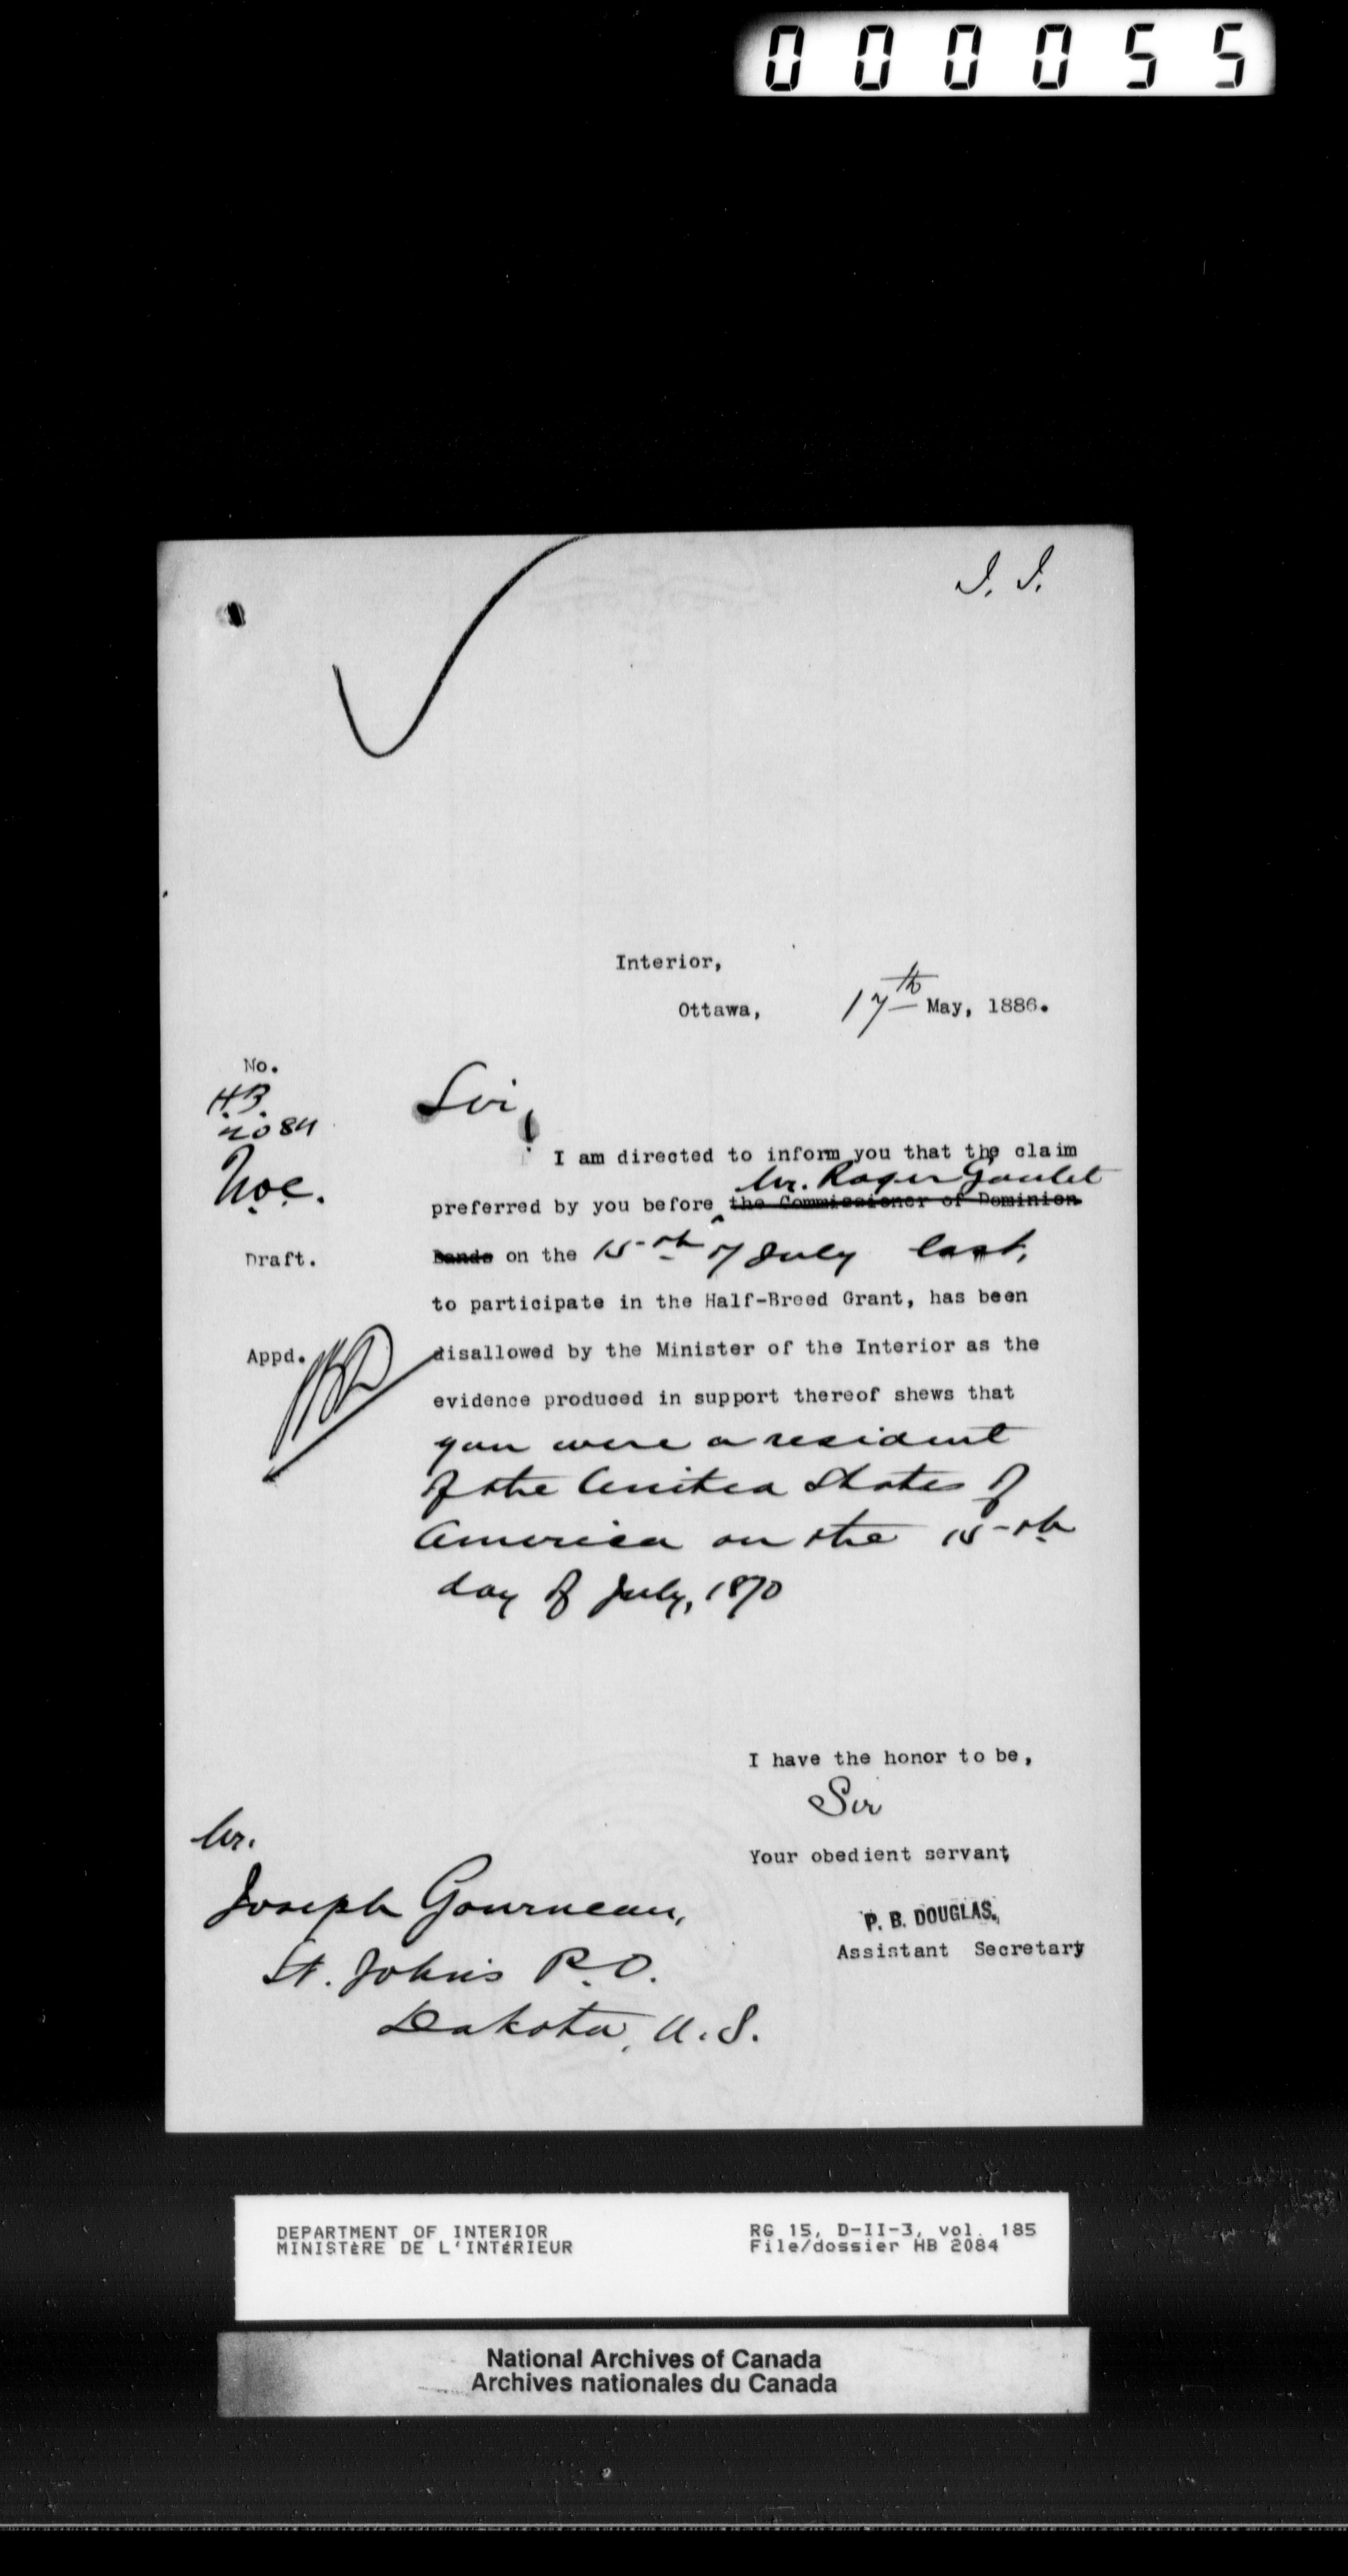 000055
I. I.
Interior,
Ottawa, 17th May, 1886.
No.
H.B.
2084
Sir,
I am directed to inform you that the claim
Mr. Roger Goulet
preferred by you before the Commissioner of Dominion
Lands on the 15th of July last,
Draft.
to participate in the Half-Breed Grant, has been
Appd. disallowed by the Minister of the Interior as the
evidence produced in support thereof shews that
you were a resident
of the United States of
America on the 15th
day of July, 1870
I have the honor to be,
Sir
Your obedient servant,
P. B. DOUGLAS.,
Assistant Secretary
Mr.
Joseph Gourneau,
St. John's P.O.
Dakota, U.S.
DEPARTMENT OF INTERIOR
MINISTÈRE DE L'INTÉRIEUR
RG 15, D-II-3, vol. 185
File/dossier HB 2084
National Archives of Canada
Archives nationales du Canada